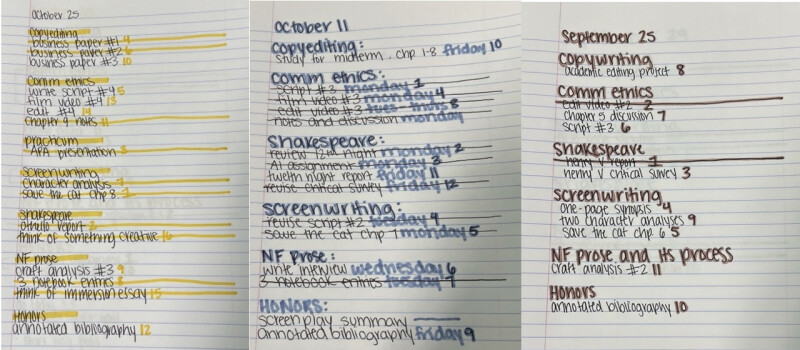 October 25
copyediting
business paper #1 4
business paper #2 6
business paper #3 10
Comm ethics
write script #4 5
film video #4 13
edit #4 14
chapter 9 notes 11
practicum
APA presentation 3
screenwriting
character analysis 7
save the cat chp 8. 1
Shakespeare
othello report 2
think of something creative 16
NF prose
craft analysis #3 9
3 notebook entries 8
think of immersion essay 15
Honors
annotated bibliography 12
October 11
copyediting:
study for midterm. chp 1-8 friday 10
comm ethics:
script #3 monday 1
film video #3 monday 4
edit video #3 tues-thurs 8
notes and discussion monday
Shakespeare:
review 12th night monday 2
AI assignment monday 3
twelth night report friday 11
revise critical survey friday 12
screenwriting:
revise script #2 tuesday 4
save the cat chp 7 monday 5
NF Prose:
write interview wednesday 6
3 notebook entries tuesday 7
HONORS:
screenplay summary
annotated bibliography friday 9
September 25
copywriting
academic editing project 8
Comm ethics
edit video #2 2
chapter 5 discussion 7
script #3 6
Shakespeare
henry V report 1
henry V critical survey 3
screenwriting
one-page synopsis 4
two character analyses 9
save the cat chp 6 5
NF prose and its process
craft analysis #2 11
Honors
annotated bibliography 10